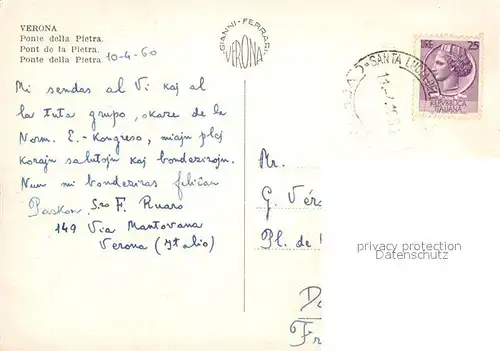 VERONA
Ponte della Pietra.
Pont de la Pietra.
Ponte della Pietra
10-4-60
GIANNI-FERRARI
VERONA
Mi sendas al Vi kaj al
la tuta grupo, okaze de la
Norm. E.-Kongreso, miajn plej
korajn salutojn kaj bondezirojn.
Nun mi bondeziras feliĉan
Paskon. S-ro F. Ruaro
149 Via Mantovana
Verona (Italio)
SANTA LUCIA
LIRE 25
REPVBBLICA
ITALIANA
Mr.
G. Vér
Pl. de
Fr
privacy protection
Datenschutz